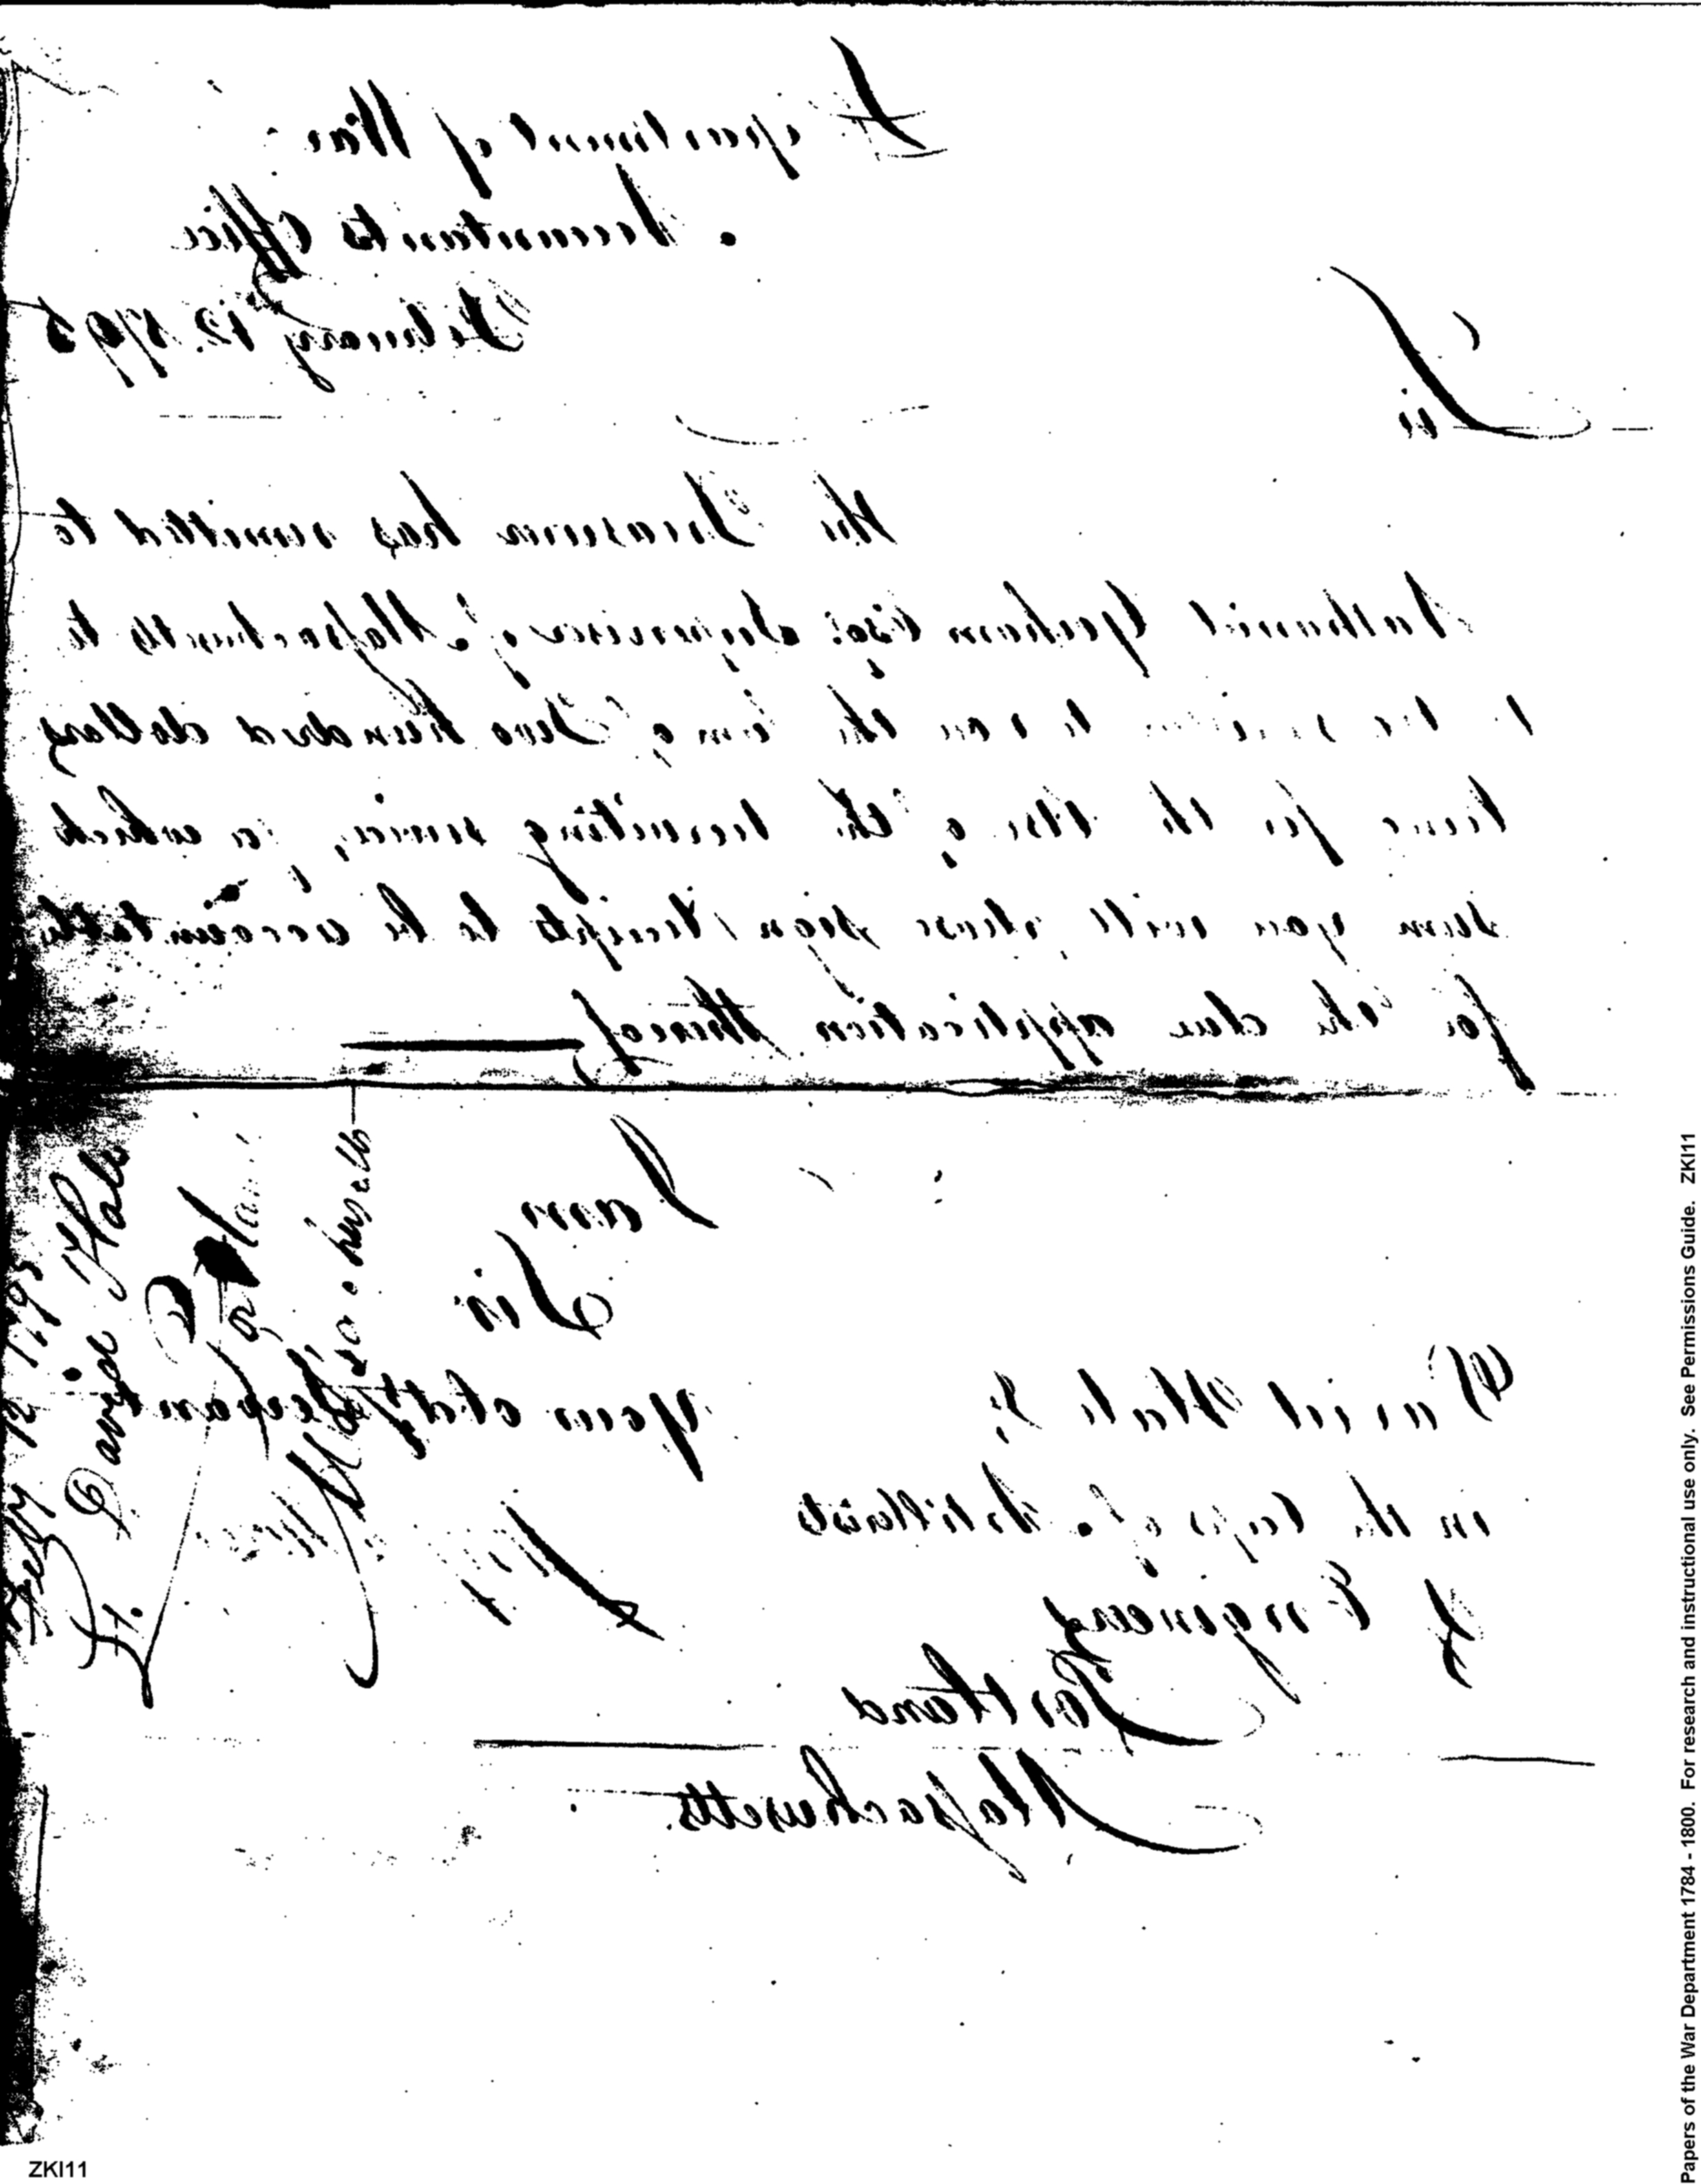 Department of War
Accountants Office
February 12th 1795
Sir
The Treasurer has remitted to
Nathaniel Gorham Esqr. Supervisor of Massachusetts to
be to you the sum of Two hundred dollars
for the Use of the recruiting service, for which
sum you will please sign receipts to be accountable
for the due application thereof
I am
Sir
Your obdt. Servant
David Hale
in the Corps of Artillerists
& Engineers
Portland
Massachusetts.
Feby 12 1795
Lt. David Hale
Portland
Massachusetts
Papers of the War Department 1784 - 1800. For research and instructional use only. See Permissions Guide. ZKI11
ZKI11